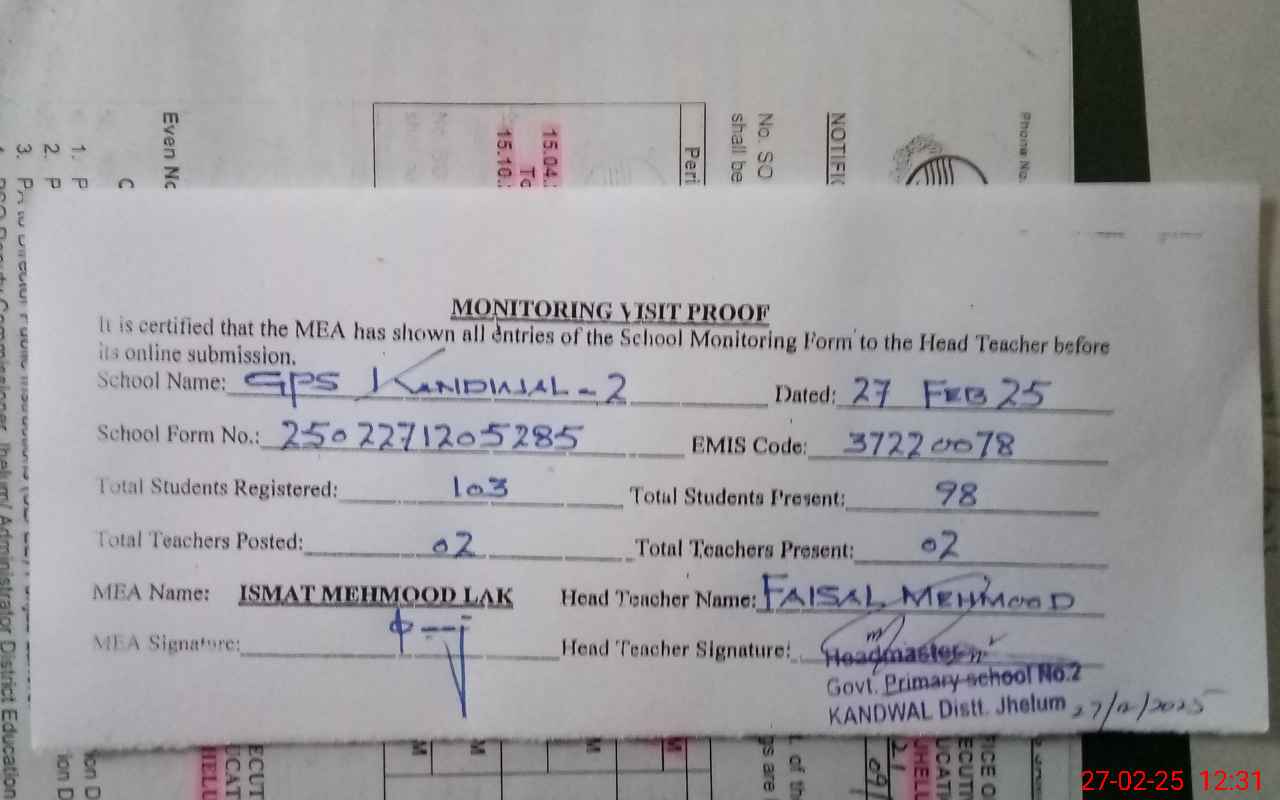 Phone No.
NOTIFIC
No. SO
shall be
Peri
15.04.
To
15.10.
Even No
C
1. P
2. P
3. P
MONITORING VISIT PROOF
It is certified that the MEA has shown all entries of the School Monitoring Form to the Head Teacher before
its online submission.
School Name: GPS KANDWAL-2 Dated: 27 FEB 25
School Form No.: 2502271205285 EMIS Code: 37220078
Total Students Registered: 103 Total Students Present: 98
Total Teachers Posted: 02 Total Teachers Present: 02
MEA Name: ISMAT MEHMOOD LAK Head Teacher Name: FAISAL MEHMOOD
MEA Signature: Head Teacher Signature:
Headmaster
Govt. Primary school No.2
KANDWAL Distt. Jhelum
27-02-25 12:31